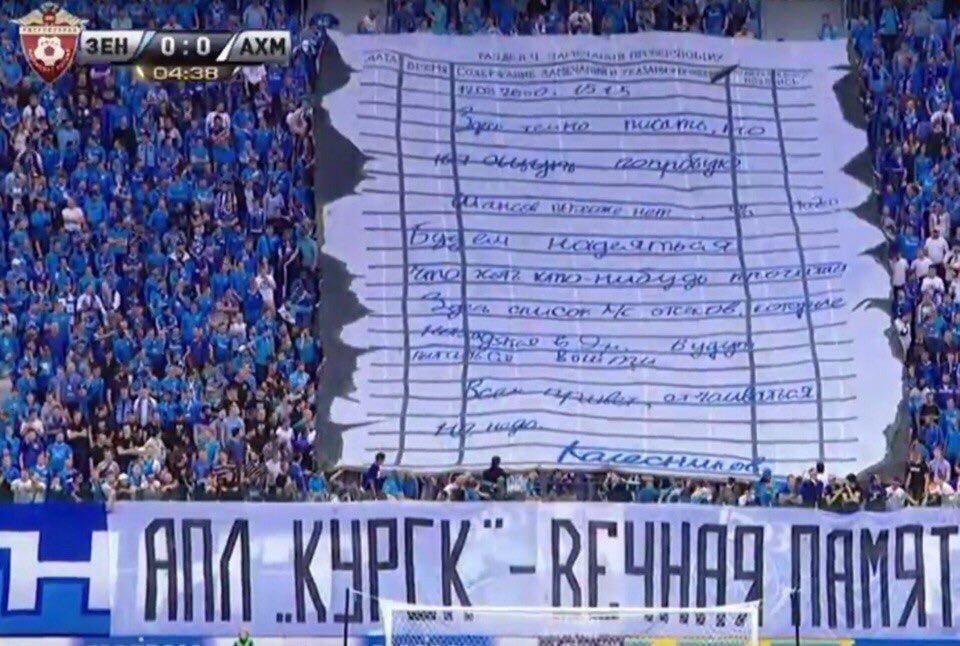 ЗЕН 0:0 АХМ
04:38
РАЗДЕЛ 4. ЗАМЕЧАНИЯ ПРОВЕРЯЮЩИХ
ДАТА ВРЕМЯ СОДЕРЖАНИЕ ЗАМЕЧАНИЙ И УКАЗАНИЯ
15
Здесь темно писать, но
на ощупь попробую
Шансов похоже нет
Будем надеяться
что хоть кто-нибудь прочитает
Здесь список л/с отсеков, которые
находятся в 9м. Будут
пытаться выйти
Всем привет, отчаиваться
не надо.
Колесников
Н АПЛ „КУРСК“ - ВЕЧНАЯ ПАМЯТ